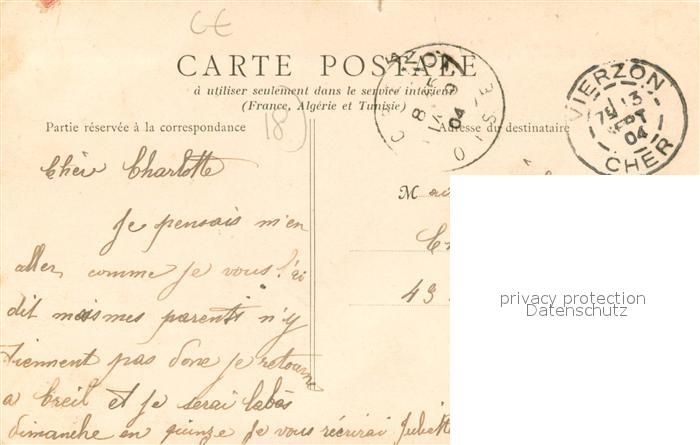 CARTE POSTALE
à utiliser seulement dans le service intérieur
(France, Algérie et Tunisie)
18
Partie réservée à la correspondance
Adresse du destinataire
CREIL
OISE
8
04
VIERZON
7E 13
SEPT
04
CHER
Chère Charlotte
Je pensais m'en
aller, comme je vous l'ai
dit mais mes parents n'y
tiennent pas donc je retourne
a Creil et je serai labàs
dimanche en quinze je vous récrirai Juliette
M
43
privacy protection
Datenschutz